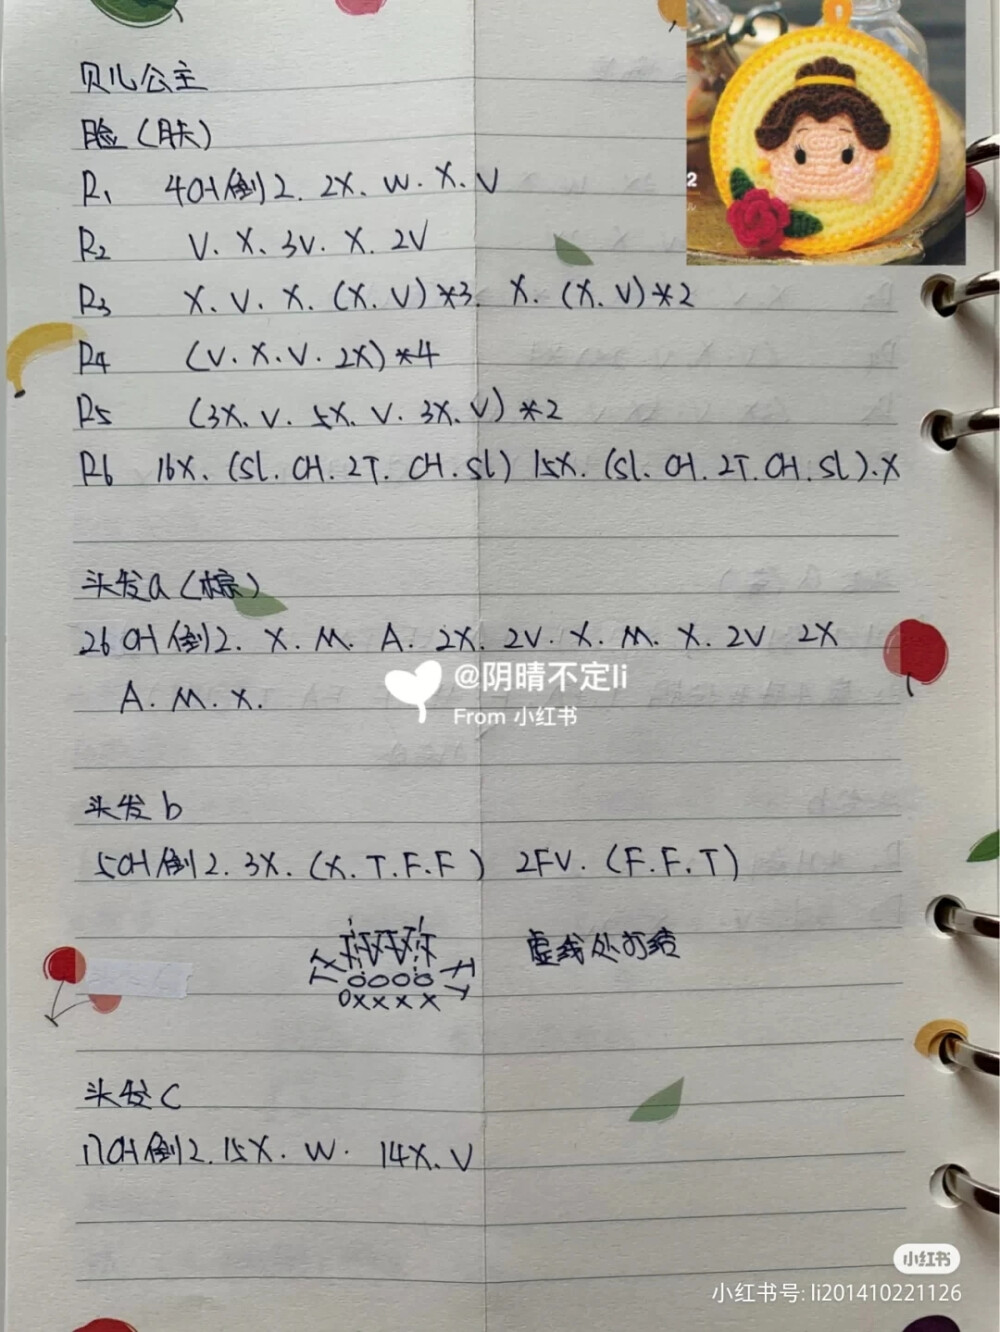 贝儿公主
脸（肤）
R1 4CH倒2. 2X. W. X. V
2
R2 V. X. 3V. X. 2V
R3 X. V. X. (X. V)*3. X. (X. V)*2
R4 (V. X. V. 2X)*4
R5 (3X. V. 5X. V. 3X. V)*2
R6 16X. (SL. CH. 2T. CH. SL) 15X. (SL. CH. 2T. CH. SL). X
头发a（棕）
26CH倒2. X. M. A. 2X. 2V. X. M. X. 2V 2X
A. M. X.
@阴晴不定li
From 小红书
头发b
5CH倒2. 3X. (X. T. F. F) 2FV. (F. F. T)
虚线处打结
0XXXX
头发C
17CH倒2. 15X. W. 14X. V
小红书
小红书号: li201410221126